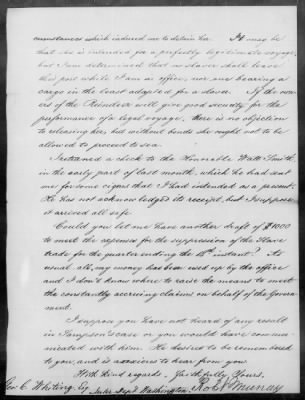 cumstances which induced me to detain her. It may be
that she is intended for a perfectly legitimate voyage,
but I am determined that no slaver shall leave
this port while I am in office, nor one bearing a
cargo in the least adapted for a slaver. If the own-
ers of the Reindeer will give good security for the
performance of a legal voyage, there is no objection
to releasing her, but without bonds she ought not to be
allowed to proceed to sea.
I returned a check to the Honorable Watt Smith
in the early part of last month, which he had sent
me for some cigars that I had intended as a present.
He has not acknowledged its receipt, but I suppose
it arrived all safe.
Could you let me have another draft of $1000
to meet the expenses for the suppression of the Slave
trade for the quarter ending the 18th instant? As
usual all my money has been used up by the office
and I don't know where to raise the means to meet
the constantly accruing claims on behalf of the Govern-
ment.
I suppose you have not heard of any result
in Sampson's case or you would have commu-
nicated with him. He desires to be remem-
bered to you, and is anxious to hear from you.
With kind regards. Faithfully Yours,
Geo. C. Whiting, Esq Robt Murray
Inter. Dept. Washington